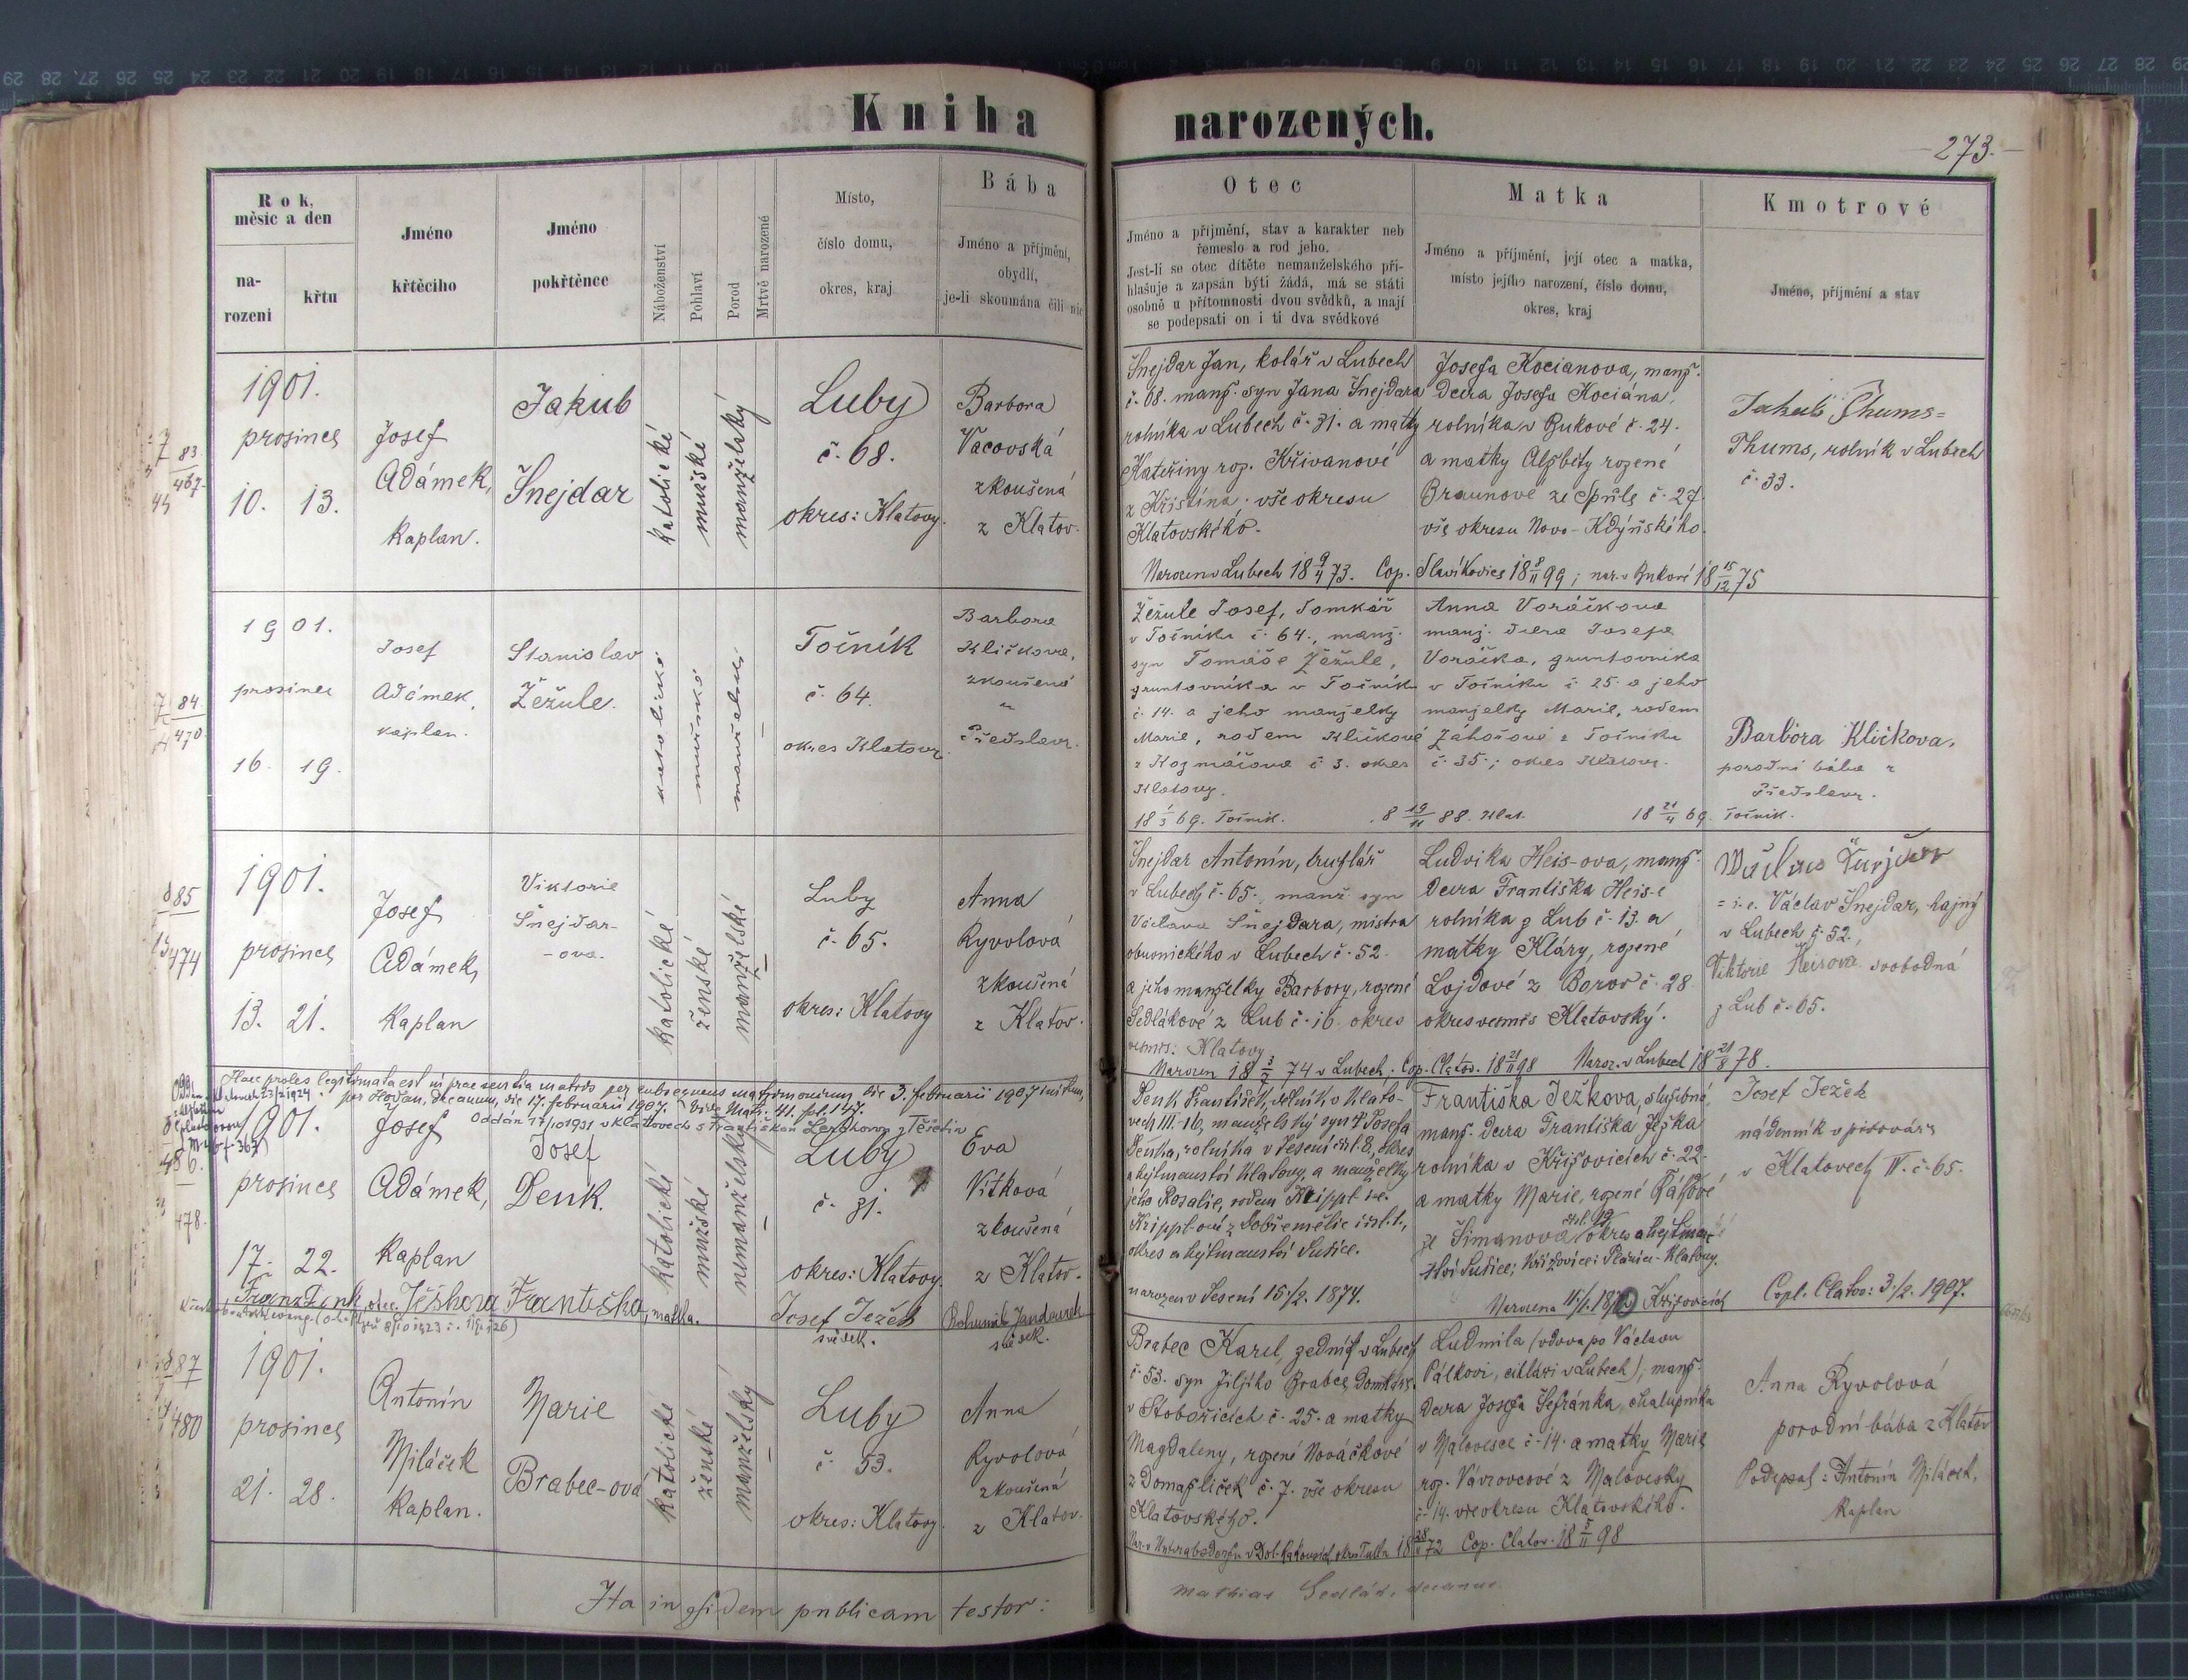 Kniha narozených.
273.
Rok,
měsíc a den
na-
rozeni
křtu
Jméno
křtěcího
Jméno
pokřtěnce
Náboženství
Pohlaví
Porod
Mrtvě narozené
Místo,
číslo domu,
okres, kraj
Bába
Jméno a příjmění,
obydlí,
je-li skoumána čili nic
Otec
Jméno a příjmění, stav a karakter neb
řemeslo a rod jeho.
Jest-li se otec dítěte nemanželského při-
hlašuje a zapsán býti žádá, má se státi
osobně u přítomnosti dvou svědků, a mají
se podepsati on i ti dva svědkové
Matka
Jméno a příjmění, její otec a matka,
místo jejího narození, číslo domu,
okres, kraj
Kmotrové
Jméno, příjmění a stav
83
467
1901.
prosinec
10. 13.
Josef
Adámek,
kaplan.
Jakub
Šnejdar
katolické
mužské
manželský
Luby
č. 68.
okres: Klatovy.
Barbora
Vacovská
zkoušená
z Klatov.
Šnejdar Jan, kolář v Lubech
č. 68. manž. syn Jana Šnejdara
rolníka v Lubech č. 31. a matky
Kateřiny roz. Křivanové
z Křištína. vše okresu
Klatovského.
Josefa Kocianova, manž.
dcera Josefa Kociána,
rolníka v Bukové č. 24.
a matky Alžběty rozené
Braunové ze Spůle č. 27.
vše okresu Novo-Kdýňského.
Thums, rolník v Lubech
č. 33.
Narozen v Lubech 18 9/4 73. Cop. Slavíkovice 18 99; nar. v Bukové 18 15/12 75
84
470
1901.
prosinec
16. 19.
Josef
Adámek,
kaplan.
Stanislav
Žežule.
katolické
mužské
manželské
Točník
č. 64.
okres Klatovy.
Barbora
Kličkova,
zkoušená
z
Předslavi.
Žežule Josef, domkář
v Točníku č. 64., manž.
syn Tomáše Žežule,
gruntovníka v Točníku
č. 14. a jeho manželky
Marie, rodem Kličkové
z Kozmáčova č 3. okres
Klatovy.
Anna Voráčkova
manž. dcera Josefa
Voráčka, gruntovníka
v Točníku č 25. a jeho
manželky Marie, rodem
Záhořové z Točníku
č. 35.; okres Klatovy.
Barbora Kličkova,
porodní bába z
Předslavi.
18 1/3 69. Točník. 8 19/11 88. Klat. 18 21/4 69. Točník.
85
474
1901.
prosinec
13. 21.
Josef
Adámek,
kaplan
Viktorie
Šnejdar-
-ova.
katolické
ženské
manželské
Luby
č. 65.
okres: Klatovy
Anna
Ryvolová
zkoušená
z Klatov.
Šnejdar Antonín, truhlář
v Lubech č. 65., manž. syn
Václava Šnejdara, mistra
obuvnického v Lubech č. 52.
a jeho manželky Barbory, rozené
Sedlákové z Lub č. 16. okres
vesměs: Klatovy
Ludvika Heis-ova, manž.
dcera Františka Heis-e
rolníka z Lub č. 13. a
matky Kláry, rozené
Lojdové z Borov č. 28.
okres vesměs Klatovský.
= i.e. Václav Šnejdar, hajný
v Lubech č. 52.,
Viktorie Heisova svobodná
z Lub č. 65.
Narozen 18 3/2 74 v Lubech. Cop. Clatov. 18 21/11 98 Naroz. v Lubech 18 21/8 78.
Haec proles legitimata est in praesentia matris per subsequens matrimonium die 3. februarii 1907 initum,
per Hoďan, decanum, die 17. februarii 1907. Vide Matr. 41. fol. 147.
Oddán 17/10 1931 v Klatovech s Františkou
478.
1901.
prosinec
17. 22.
Josef
Adámek,
kaplan
Josef
Denk.
katolické
mužské
nemanželský
Luby
č. 31.
okres: Klatovy
Eva
Vítková
zkoušená
z Klatov.
Denk František, dělník v Klato-
vech III. 16, manželský syn † Josefa
Denka, rolníka v Vesení čísl. 8, okres
a hejtmanství Klatovy, a manželky
jeho Rosalie, rodem Krippl i.e.
Kripplové z Dobřemělic čísl. 1.,
okres a hejtmanství Sušice.
narozen v Vesení 15/2. 1874.
Františka Ježkova, služebná,
manž. dcera Františka Ježka
rolníka v Křížovicích č. 22.
a matky Marie, rozené
ze Šimanova čísl. 19 okres a hejtman-
ství Sušice; Křížovice: Plánice-Klatovy.
Josef Ježek
nádenník v pivováře
v Klatovech IV. č. 65.
Copl. Clatov: 3/2. 1907.
Franz Denk, otec. Ježkova Františka, matka.
Josef Ježek
svědek.
Bohumil Jandourek
svědek.
87
480
1901.
prosinec
21. 28.
Antonín
Miláček
kaplan.
Marie
Brabec-ová
katolické
ženské
manželský
Luby
č. 53.
okres: Klatovy.
Anna
Ryvolová
zkoušená
z Klatov.
Brabec Karel, zedník v Lubech
č. 53. syn Jiljího Brabce, domkáře
v Stobořicích č. 25. a matky
Magdaleny, rozené Nováčkové
z Domažliček č. 7. vše okresu
Klatovského.
Ludmila (vdova po Václavu
Pálkovi, cihláři v Lubech), manž.
dcera Josefa Šefránka, chalupníka
v Malovesce č. 14. a matky Marie
roz. Vávrovcové z Malovesky
č. 14. vše okresu Klatovského.
Anna Ryvolová
porodní bába z Klatov
Podepsal: Antonín Miláček,
kaplan
72 Cop. Clatov. 18 5/11 98
Ita in fidem publicam testor:
Mathias Sedlák, decanus.